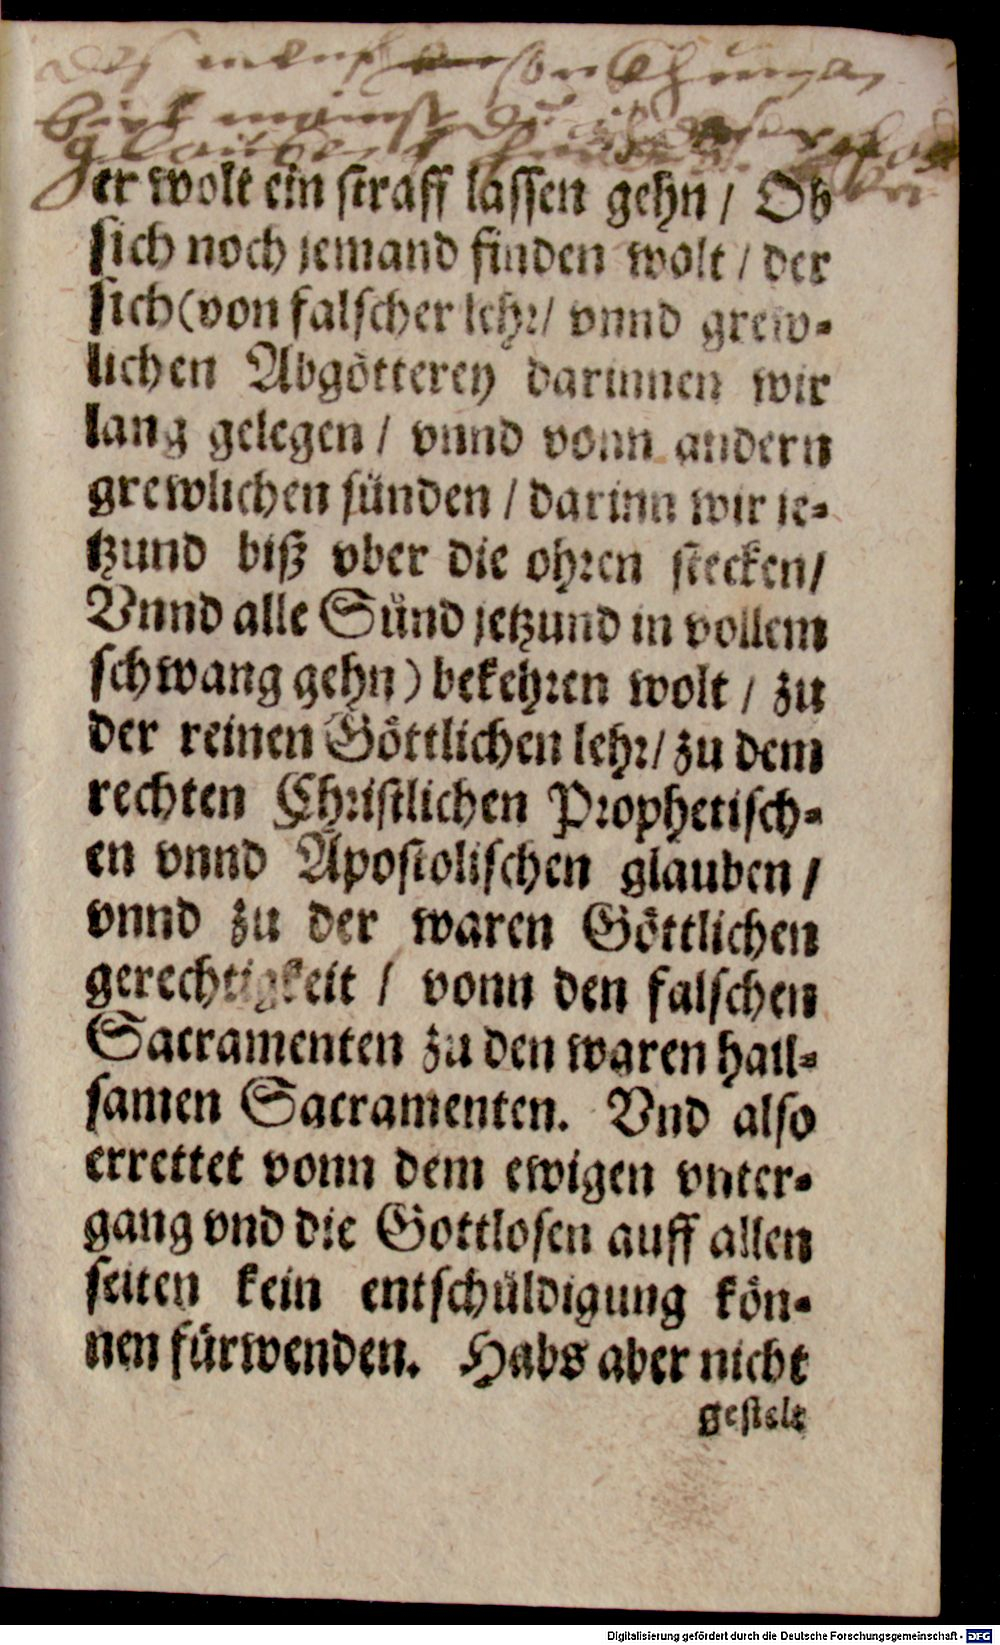 er wolt ein straff lassen gehn / Ob
sich noch jemand finden wolt / der
sich (von falscher lehr / vnnd grew-
lichen Abgötterey darinnen wir
lang gelegen / vnnd vonn andern
grewlichen sünden / darinn wir je-
tzund biß vber die ohren stecken /
Vnnd alle Sünd jetzund in vollem
schwang gehn) bekehren wolt / zu
der reinen Göttlichen lehr / zu dem
rechten Christlichen Prophetisch-
en vnnd Apostolischen glauben /
vnnd zu der waren Göttlichen
gerechtigkeit / vonn den falschen
Sacramenten zu den waren hail-
samen Sacramenten. Vnd also
errettet vonn dem ewigen vnter-
gang vnd die Gottlosen auff allen
seiten kein entschüldigung kön-
nen fürwenden. Habs aber nicht
gestelt
Digitalisierung gefördert durch die Deutsche Forschungsgemeinschaft - DFG